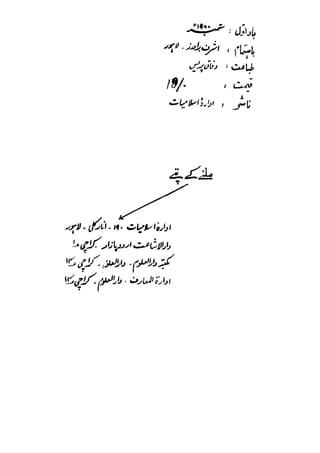 بار اول : ستمبر ۱۹۸۰ء
باہتمام : اشرف برادرز - لاہور
طباعت : وفاق پریس
قیمت : 18/.
ناشر : ادارۂ اسلامیات
ملنے کے پتے
ادارۂ اسلامیات ۱۹۰ - انارکلی - لاہور
دارالاشاعت اردو بازار - کراچی ۱
مکتبہ دارالعلوم - دارالعلوم - کراچی ۱۴
ادارۃ المعارف - دارالعلوم - کراچی ۱۴